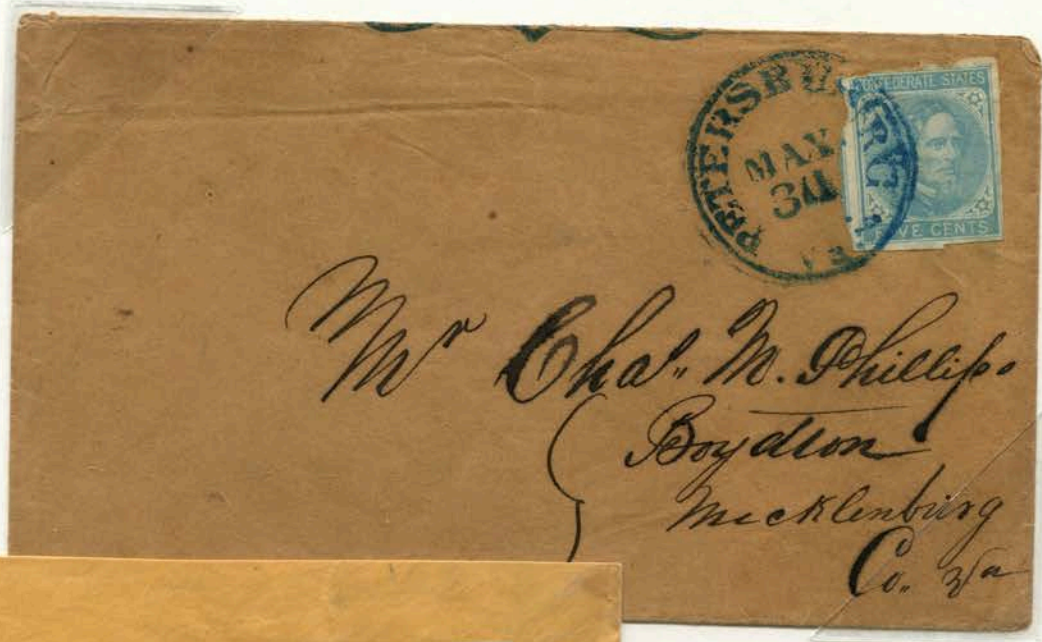 PETERSBURG VA.
MAY
30
CONFEDERATE STATES
FIVE CENTS
Mr Chas. M. Phillips
Boydton
Mecklenburg
Co. Va